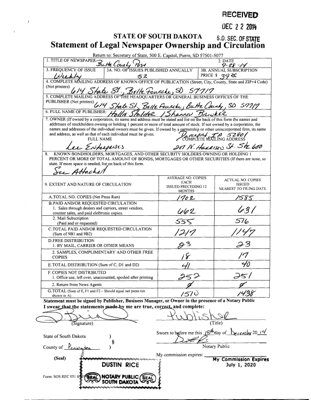 RECEIVED
DEC 22 2014
S.D. SEC. OF STATE
STATE OF SOUTH DAKOTA
Statement of Legal Newspaper Ownership and Circulation
Return to: Secretary of State, 500 E. Capitol, Pierre, SD 57501-5077
1. TITLE OF NEWSPAPER Butte County Post
2. DATE
3. FREQUENCY OF ISSUE Weekly
3A. NO. OF ISSUES PUBLISHED ANNUALLY 52
3B. ANNUAL SUBSCRIPTION PRICE $
4. COMPLETE MAILING ADDRESS OF KNOWN OFFICE OF PUBLICATION (Street, City, County, State and ZIP+4 Code) (Not printers)
614 State St. Belle Fourche, SD 57717
5. COMPLETE MAILING ADDRESS OF THE HEADQUARTERS OF GENERAL BUSINESS OFFICES OF THE PUBLISHER (Not printer)
614 State St, Belle Fourche, Butte County, SD 57717
6. FULL NAME OF PUBLISHER:
7. OWNER (If owned by a corporation, its name and address must be stated and also on the back of this form the names and addresses of stockholders owning or holding 1 percent or more of total amount of stock. If not owned by a corporation, the names and addresses of the individual owners must be given. If owned by a partnership or other unincorporated firm, its name and address, as well as that of each individual must be given.
FULL NAME
COMPLETE MAILING ADDRESS
Lee Enterprises
8. KNOWN BONDHOLDERS, MORTGAGEES, AND OTHER SECURITY HOLDERS OWNING OR HOLDING 1 PERCENT OR MORE OF TOTAL AMOUNT OF BONDS, MORTGAGES OR OTHER SECURITIES (If there are none, so state. If more space is needed, list on back of this form.
See Attached
9. EXTENT AND NATURE OF CIRCULATION
AVERAGE NO. COPIES EACH ISSUED PRECEDING 12 MONTHS
ACTUAL NO. COPIES ISSUED NEAREST TO FILING DATE
A. TOTAL NO. COPIES (Net Press Run) 1585
B. PAID AND/OR REQUESTED CIRCULATION
1. Sales through dealers and carriers, street vendors, counter sales, and paid electronic copies. 662 631
2. Mail Subscription (Paid and or requested) 555 516
C. TOTAL PAID AND/OR REQUESTED CIRCULATION (Sum of 9B1 and 9B2) 1217 1147
D. FREE DISTRIBUTION
1. BY MAIL, CARRIER OR OTHER MEANS 23 23
2. SAMPLES, COMPLIMENTARY AND OTHER FREE COPIES 18 17
E. TOTAL DISTRIBUTION (Sum of C, D1 and D2) 41 40
F. COPIES NOT DISTRIBUTED
1. Office use, left over, unaccounted, spoiled after printing 252 251
2. Return from News Agents
G. TOTAL (Sum of E, F1 and F2 - Should equal net press run shown in A) 1510 1438
Statement must be signed by Publisher, Business Manager, or Owner in the presence of a Notary Public
I swear that the statements made by me are true, correct, and complete:
Publisher
(Signature)
(Title)
State of South Dakota )
) §
County of Pennington )
Sworn to before me this day of December 2014
Notary Public
(Seal)
My commission expires
My Commission Expires
July 1, 2020
DUSTIN RICE
SEAL NOTARY PUBLIC SEAL
SOUTH DAKOTA